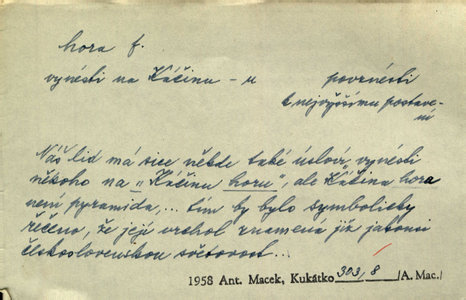 hora f.
vynésti na Káčinu - u povznésti
k nejvyššímu postave-
ní
Náš lid má sice někde také úsloví "vynésti
někoho na "Káčinu horu", ale Káčina hora
není pyramida,... tím by bylo symbolicky
řečeno, že její vrchol znamená již jakousi
československou světovost...
1958 Ant. Macek, Kukátko 303/8 /A. Mac./